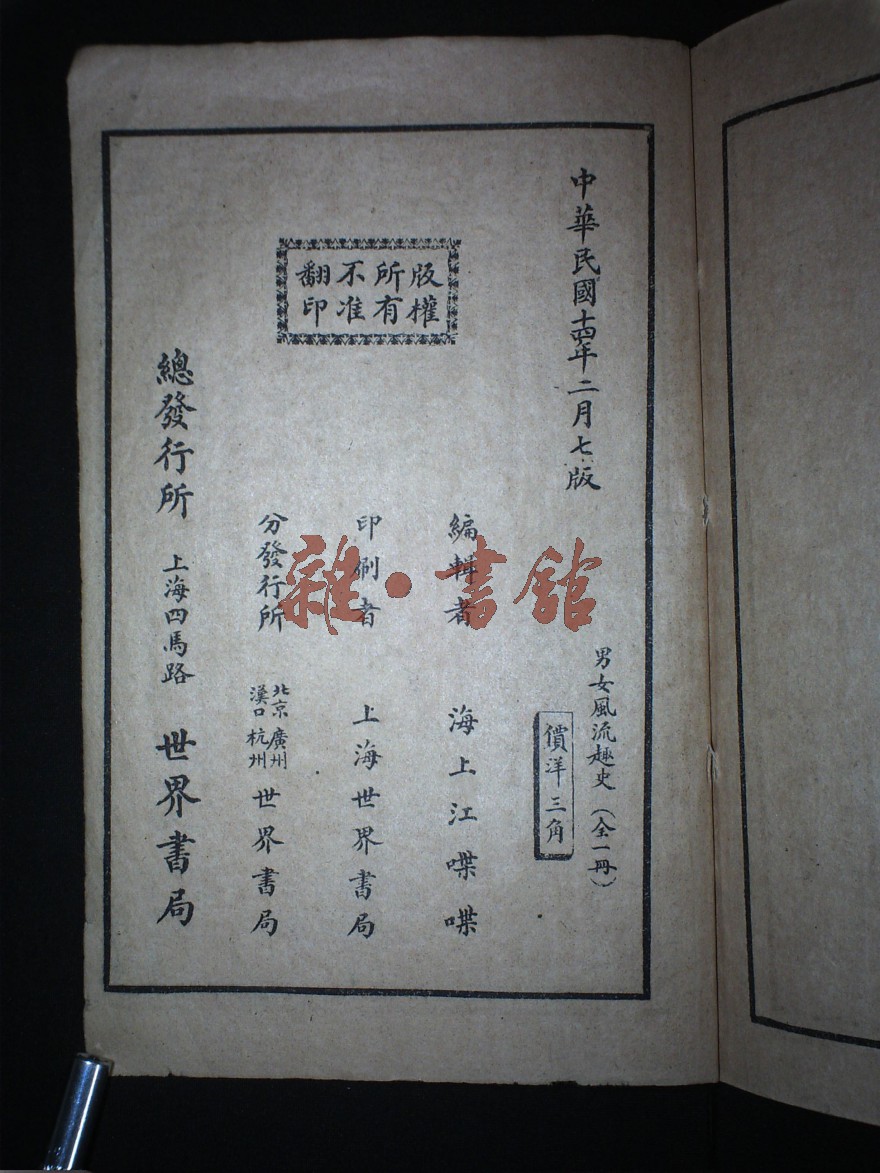 中華民國十四年二月七版
男女風流趣史（全一冊）
價洋三角
版權
所有
不准
翻印
編輯者 海上江喋喋
印刷者 上海世界書局
分發行所 北京 廣州 漢口 杭州 世界書局
總發行所 上海四馬路 世界書局
雜·書館